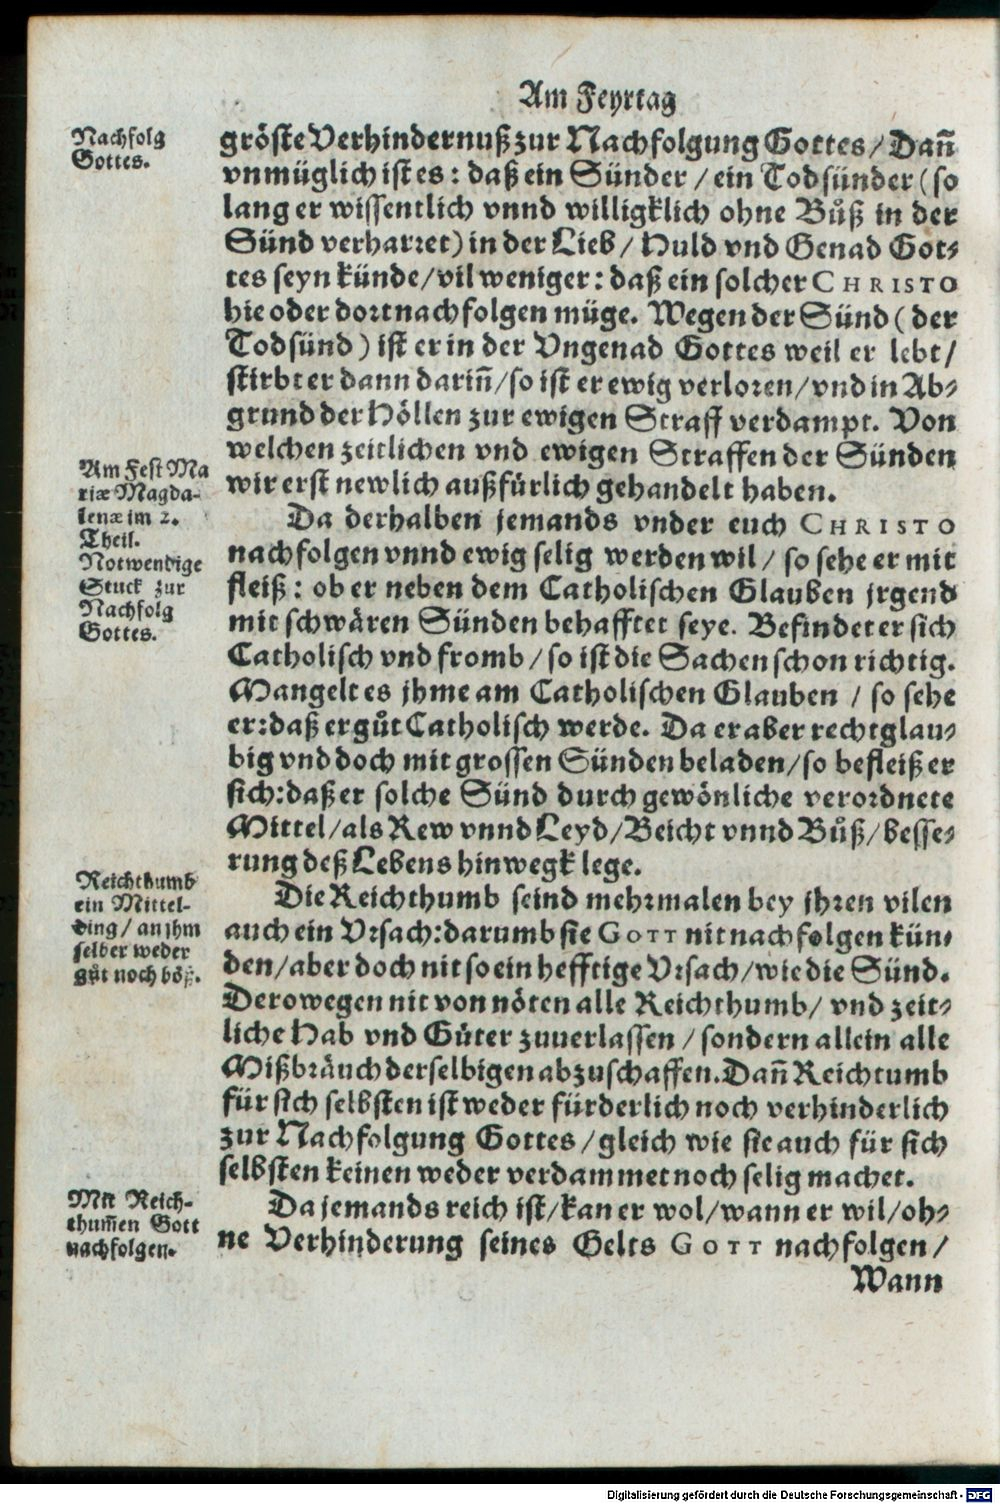 Am Feyrtag
Nachfolg
Gottes.
gröste Verhindernuß zur Nachfolgung Gottes / Dañ
vnmüglich ist es : daß ein Sünder / ein Todsünder (so
lang er wissentlich vnnd willigklich ohne Bůß in der
Sünd verharret) in der Lieb / Huld vnd Genad Got⸗
tes seyn künde / vil weniger : daß ein solcher CHRISTO
hie oder dort nachfolgen müge. Wegen der Sünd ( der
Todsünd ) ist er in der Vngenad Gottes weil er lebt /
stirbt er dann dariñ / so ist er ewig verloren / vnd in Ab⸗
grund der Höllen zur ewigen Straff verdampt. Von
welchen zeitlichen vnd ewigen Straffen der Sünden
wir erst newlich außfürlich gehandelt haben.
Am Fest Ma
riæ Magda-
lenæ im 2.
Theil.
Notwendige
Stuck zur
Nachfolg
Gottes.
Da derhalben jemands vnder euch CHRISTO
nachfolgen vnnd ewig selig werden wil / so sehe er mit
fleiß : ob er neben dem Catholischen Glauben jrgend
mit schwären Sünden behafftet seye. Befindet er sich
Catholisch vnd fromb / so ist die Sachen schon richtig.
Mangelt es jhme am Catholischen Glauben / so sehe
er: daß er gůt Catholisch werde. Da er aber rechtglau⸗
big vnd doch mit grossen Sünden beladen / so befleiß er
sich: daß er solche Sünd durch gewönliche verordnete
Mittel / als Rew vnnd Leyd / Beicht vnnd Bůß / besse⸗
rung deß Lebens hinwegk lege.
Reichthumb
ein Mittel-
ding / an jhm
selber weder
gůt noch böß.
Die Reichthumb seind mehrmalen bey jhren vilen
auch ein Vrsach: darumb sie GOTT nit nachfolgen kün⸗
den / aber doch nit so ein hefftige Vrsach / wie die Sünd.
Derowegen nit von nöten alle Reichthumb / vnd zeit⸗
liche Hab vnd Gůter zuuerlassen / sondern allein alle
Mißbräuch derselbigen abzuschaffen. Dañ Reichtumb
für sich selbsten ist weder fürderlich noch verhinderlich
zur Nachfolgung Gottes / gleich wie sie auch für sich
selbsten keinen weder verdammet noch selig machet.
Mit Reich-
thum̃en Gott
nachfolgen.
Da jemands reich ist / kan er wol / wann er wil / oh⸗
ne Verhinderung seines Gelts GOTT nachfolgen /
Wann
Digitalisierung gefördert durch die Deutsche Forschungsgemeinschaft - DFG